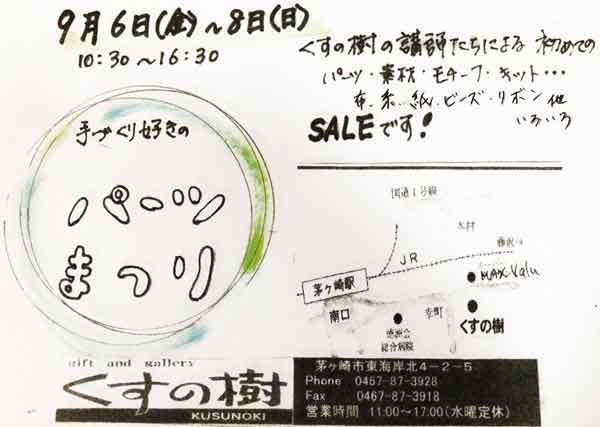 9月6日(金)～8日(日)
10:30～16:30
くすの樹の講師たちによる 初めての
パーツ・素材・モチーフ・キット・・・
布.糸.紙.ビーズ・リボン 他
いろいろ
SALEです!
手づくり好きの
パーツ
まつり
国道1号線
木村
藤沢→
JR
スーパー
MAX Valu
茅ヶ崎駅
南口
幸町
くすの樹
徳洲会
総合病院
gift and gallery
くすの樹
KUSUNOKI
茅ヶ崎市東海岸北4-2-5
Phone 0467-87-3928
Fax 0467-87-3918
営業時間 11:00～17:00(水曜定休)